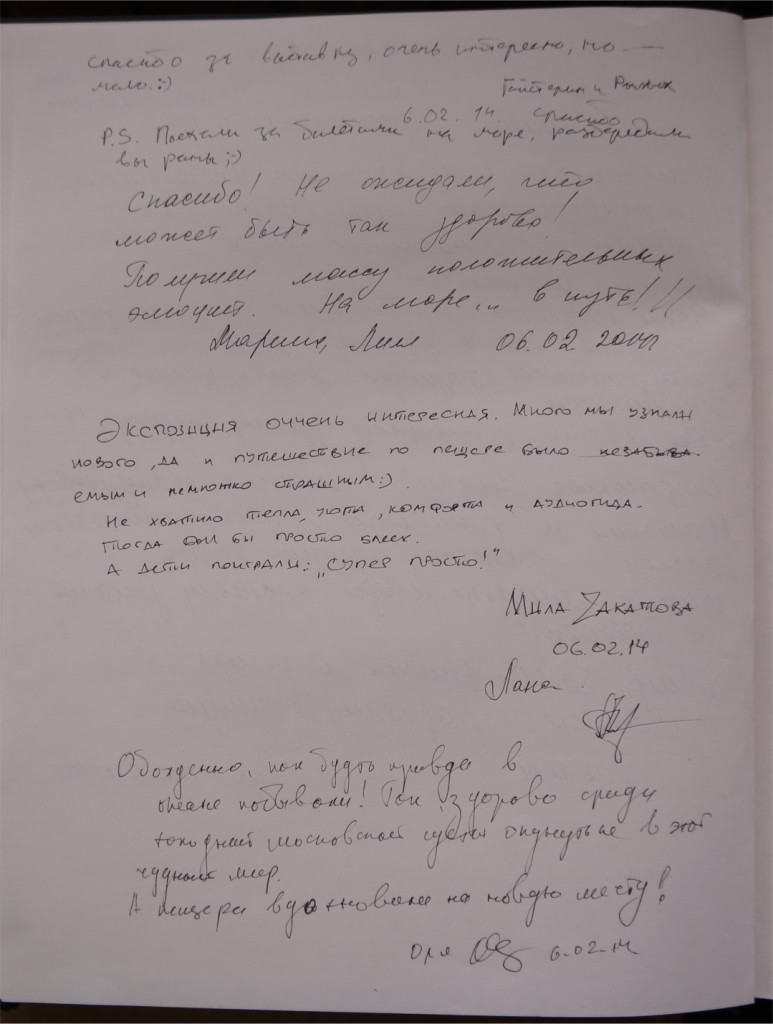 спасибо за выставку, очень интересно, но —
мало. :)
и Рыжик
6.02.14. спасибо
P.S. Поехали за билетами на море, разбередили
вы раны ;-)
Спасибо! Не ожидали, что
может быть так здорово!
Получили массу положительных
эмоций. На море... в путь!!!
Марина, 06.02 2014г
Экспозиция оччень интересная. Много мы узнали
нового, да и путешествие по пещере было незабыва-
емым и немножко страшным :).
Не хватило тепла, уюта, комфорта и аудиогида.
Тогда был бы просто блеск.
А дети поиграли: „Супер просто!"
Мила
06.02.14
Лана
как будто правда в
океане побывали! Так здорово среди
холодной московской суеты окунуться в этот
чудный мир.
А пещера вдохновила на новую мечту!
Оля 6.02.14